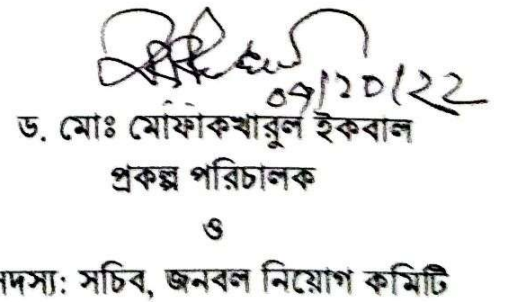 ০৭/১০/২২
ড. মোঃ মোফাকখারুল ইকবাল
প্রকল্প পরিচালক
ও
সদস্য: সচিব, জনবল নিয়োগ কমিটি